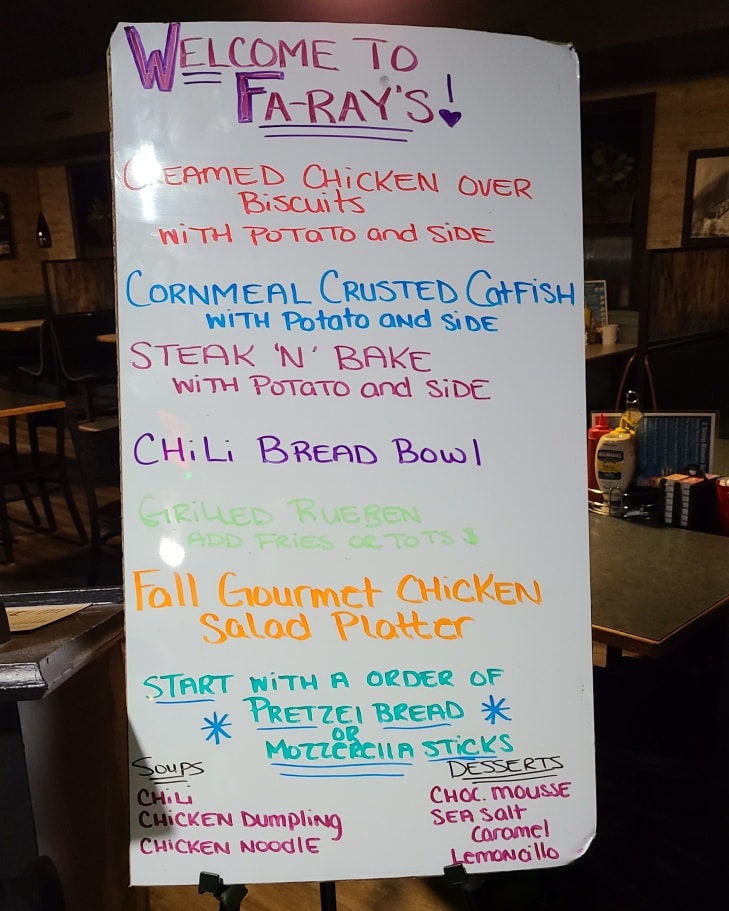 WELCOME TO
FA-RAY'S!
CREAMED CHiCKEN OVER
BiScuits
WiTH POTATO and SiDE
CORNMEAL CRUSTED CatFiSH
WiTH Potato AND SiDE
STEAK 'N' BAKE
WiTH POTATO and SiDE
CHiLi BREAD BOWl
GRiLLED RUEBEN
ADD FRiES OR TOTS $
Fall Gourmet CHiCKEN
Salad Platter
START WiTH A ORDER OF
* PRETZEl BREAD *
OR
MOZZERElla STiCKS
SOUPS
CHiLi
CHiCKEN Dumpling
CHiCKEN NOODLE
DESSERTS
CHOC. MOUSSE
SEA Salt
Caramel
Lemoncillo